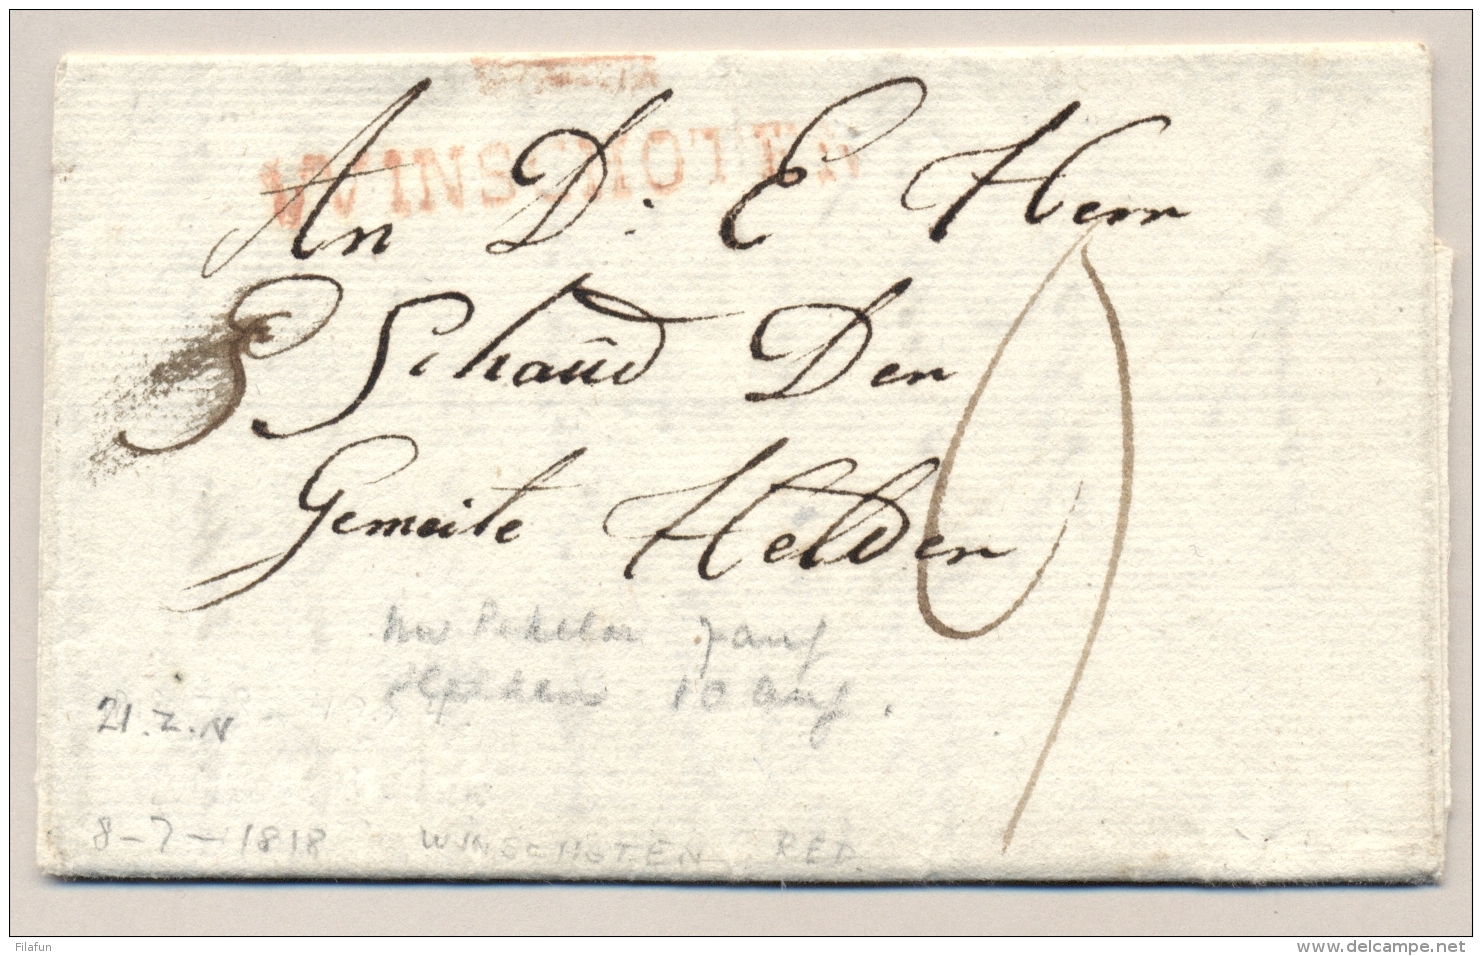 WINSCHOTEN
An D. E Herr
P Schaüd Den
Gemeite Helden
7 aug
10 aug.
21.Z.N
8-7-1818 WINSCHOTEN RED
Filafun
www.delcampe.net